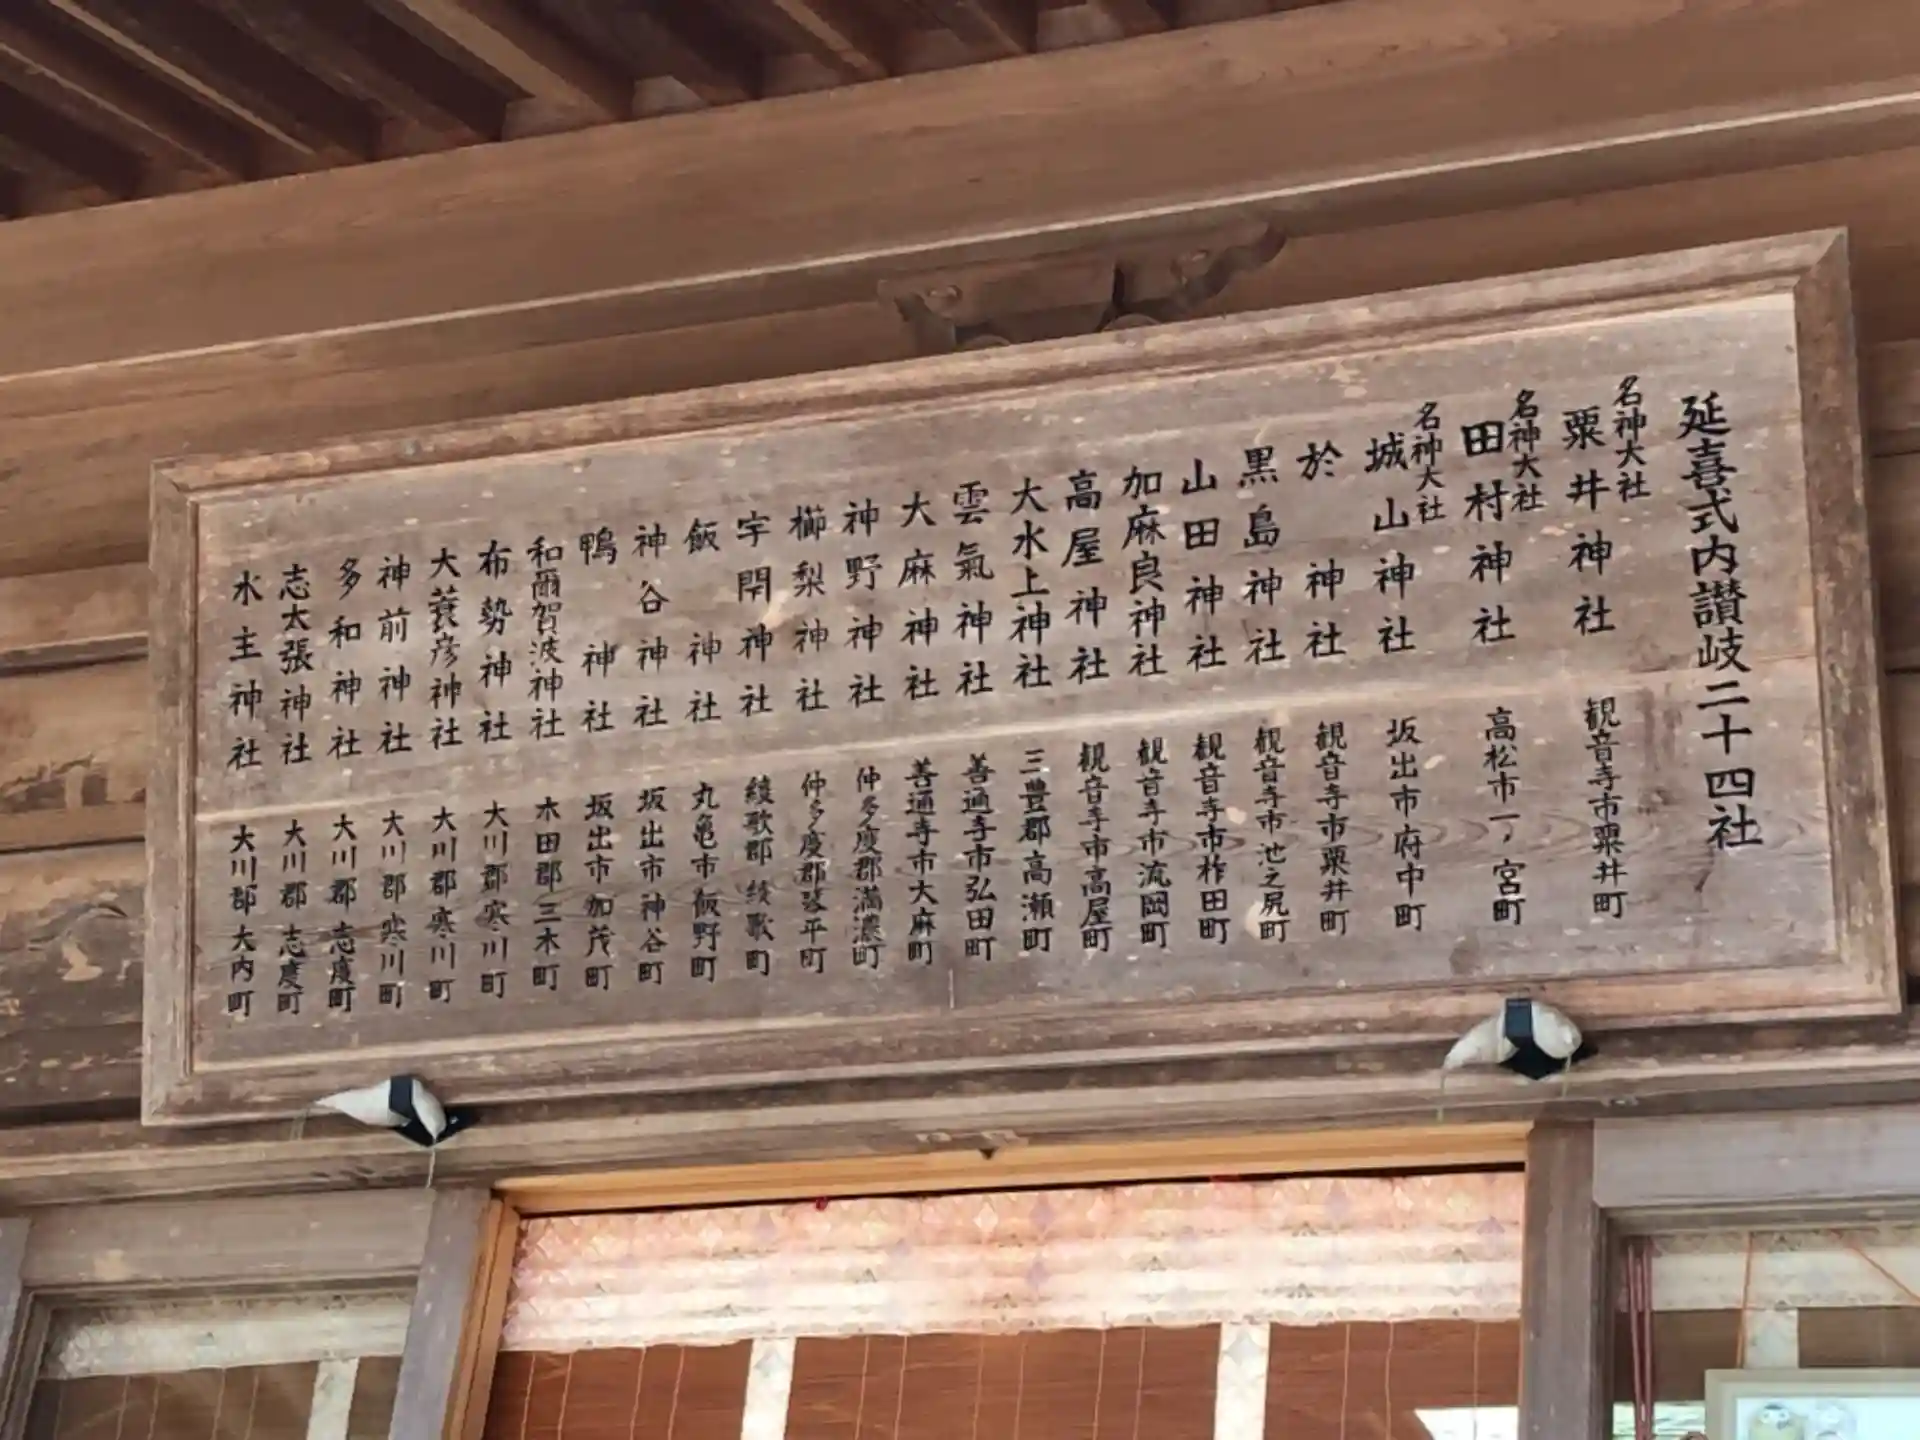 延喜式内讃岐二十四社
名神大社
粟井神社 観音寺市粟井町
名神大社
田村神社 高松市一ノ宮町
名神大社
城山神社 坂出市府中町
於神社 観音寺市粟井町
黒島神社 観音寺市池之尻町
山田神社 観音寺市柞田町
加麻良神社 観音寺市流岡町
高屋神社 観音寺市高屋町
大水上神社 三豊郡高瀬町
雲氣神社 善通寺市弘田町
大麻神社 善通寺市大麻町
神野神社 仲多度郡満濃町
櫛梨神社 仲多度郡琴平町
宇閇神社 綾歌郡綾歌町
飯神社 丸亀市飯野町
神谷神社 坂出市神谷町
鴨神社 坂出市加茂町
和爾賀波神社 木田郡三木町
布勢神社 大川郡寒川町
大蓑彦神社 大川郡寒川町
神前神社 大川郡寒川町
多和神社 大川郡志度町
志太張神社 大川郡志度町
水主神社 大川郡大内町